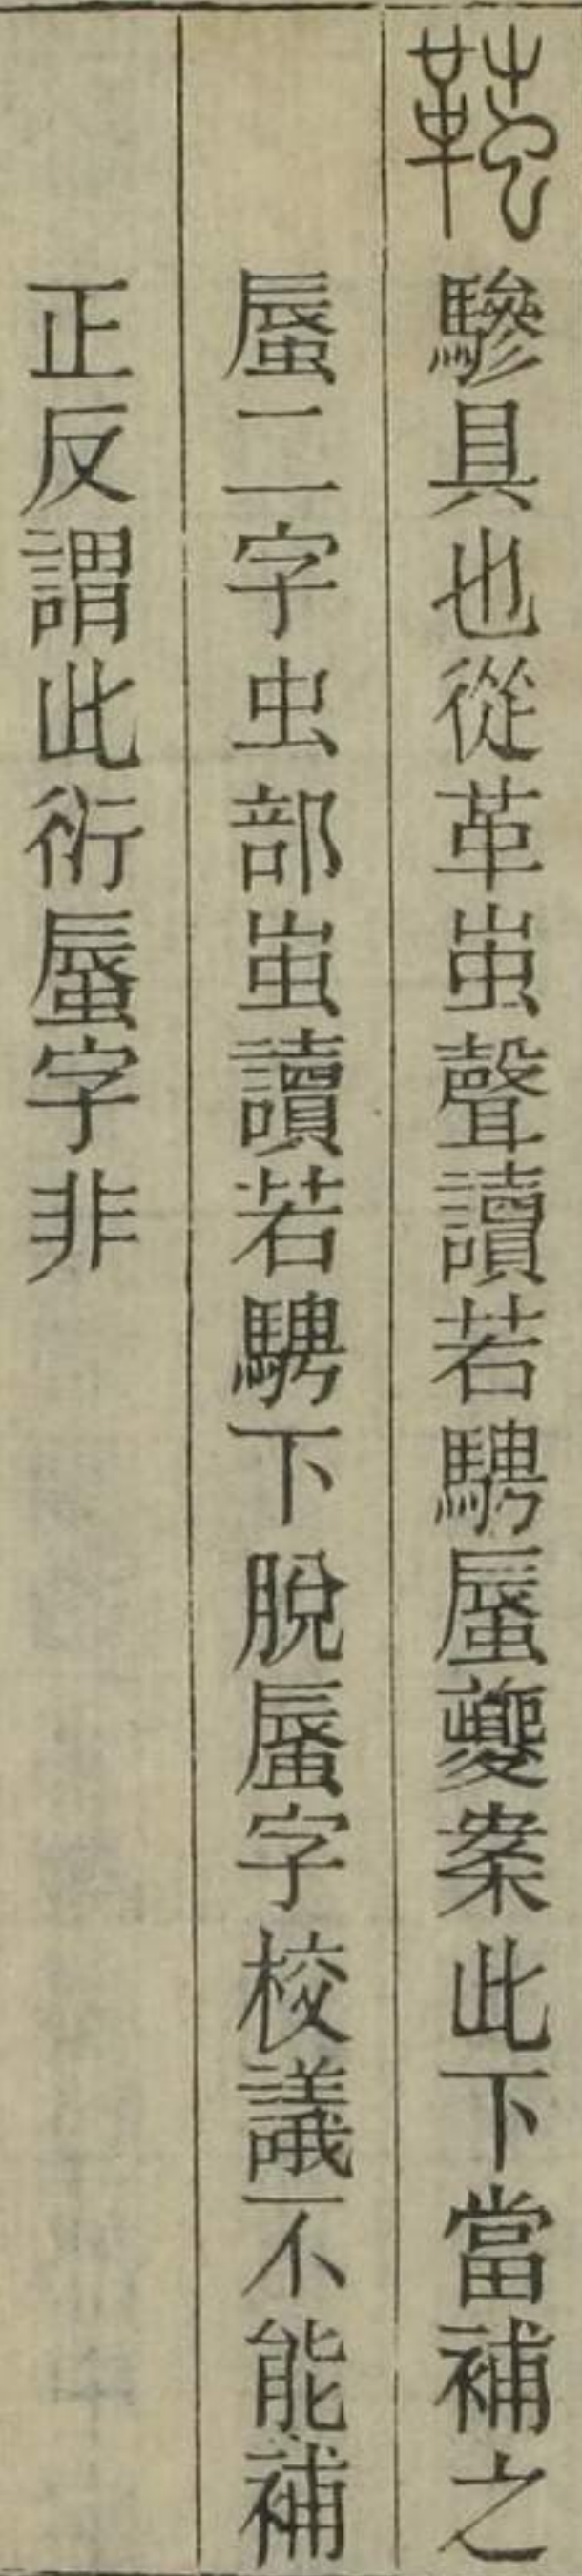 䩶驂具也從革蚩聲讀若騁蜃夔案此下當補之
蜃二字虫部蚩讀若騁下脫蜃字校議不能補
正反謂此衍蜃字非